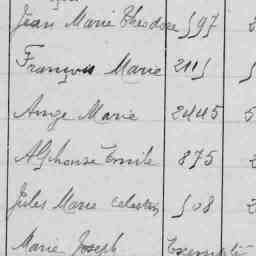 Jean Marie Théodore 597
François Marie 2115
Ange Marie 2445 5
Alphonse Emile 875 2
Jules Marie Celestin 508 2
Marie Joseph Exempté